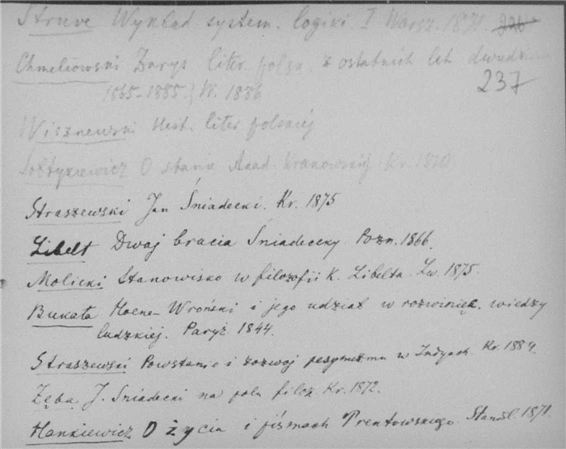 Struve Wykład system. logiki. I Warsz. 1871.
Chmielowski Zarys liter. polsk. z ostatnich lat
237
1865-1885.) W. 1886
Wiszniewski Hist. liter polskiej
Sołtykiewicz O stanie Akad. Krakowskiej Kr. 1810
Straszewski Jan Śniadecki. Kr. 1875
Libelt Dwaj bracia Śniadeccy. Pozn. 1866.
Molicki Stanowisko w filozofii K. Libelta. Lw. 1875.
Bukata Hoene-Wroński i jego udział w rozwinięc. wiedzy
ludzkiej. Paryż 1844.
Straszewski Powstanie i rozwój pesymizmu w Indyach. Kr. 1884.
Zęba J. Śniadecki na polu filoz. Kr. 1872.
Hankiewicz O życiu i pismach Trentowskiego. Stanisł. 1871.